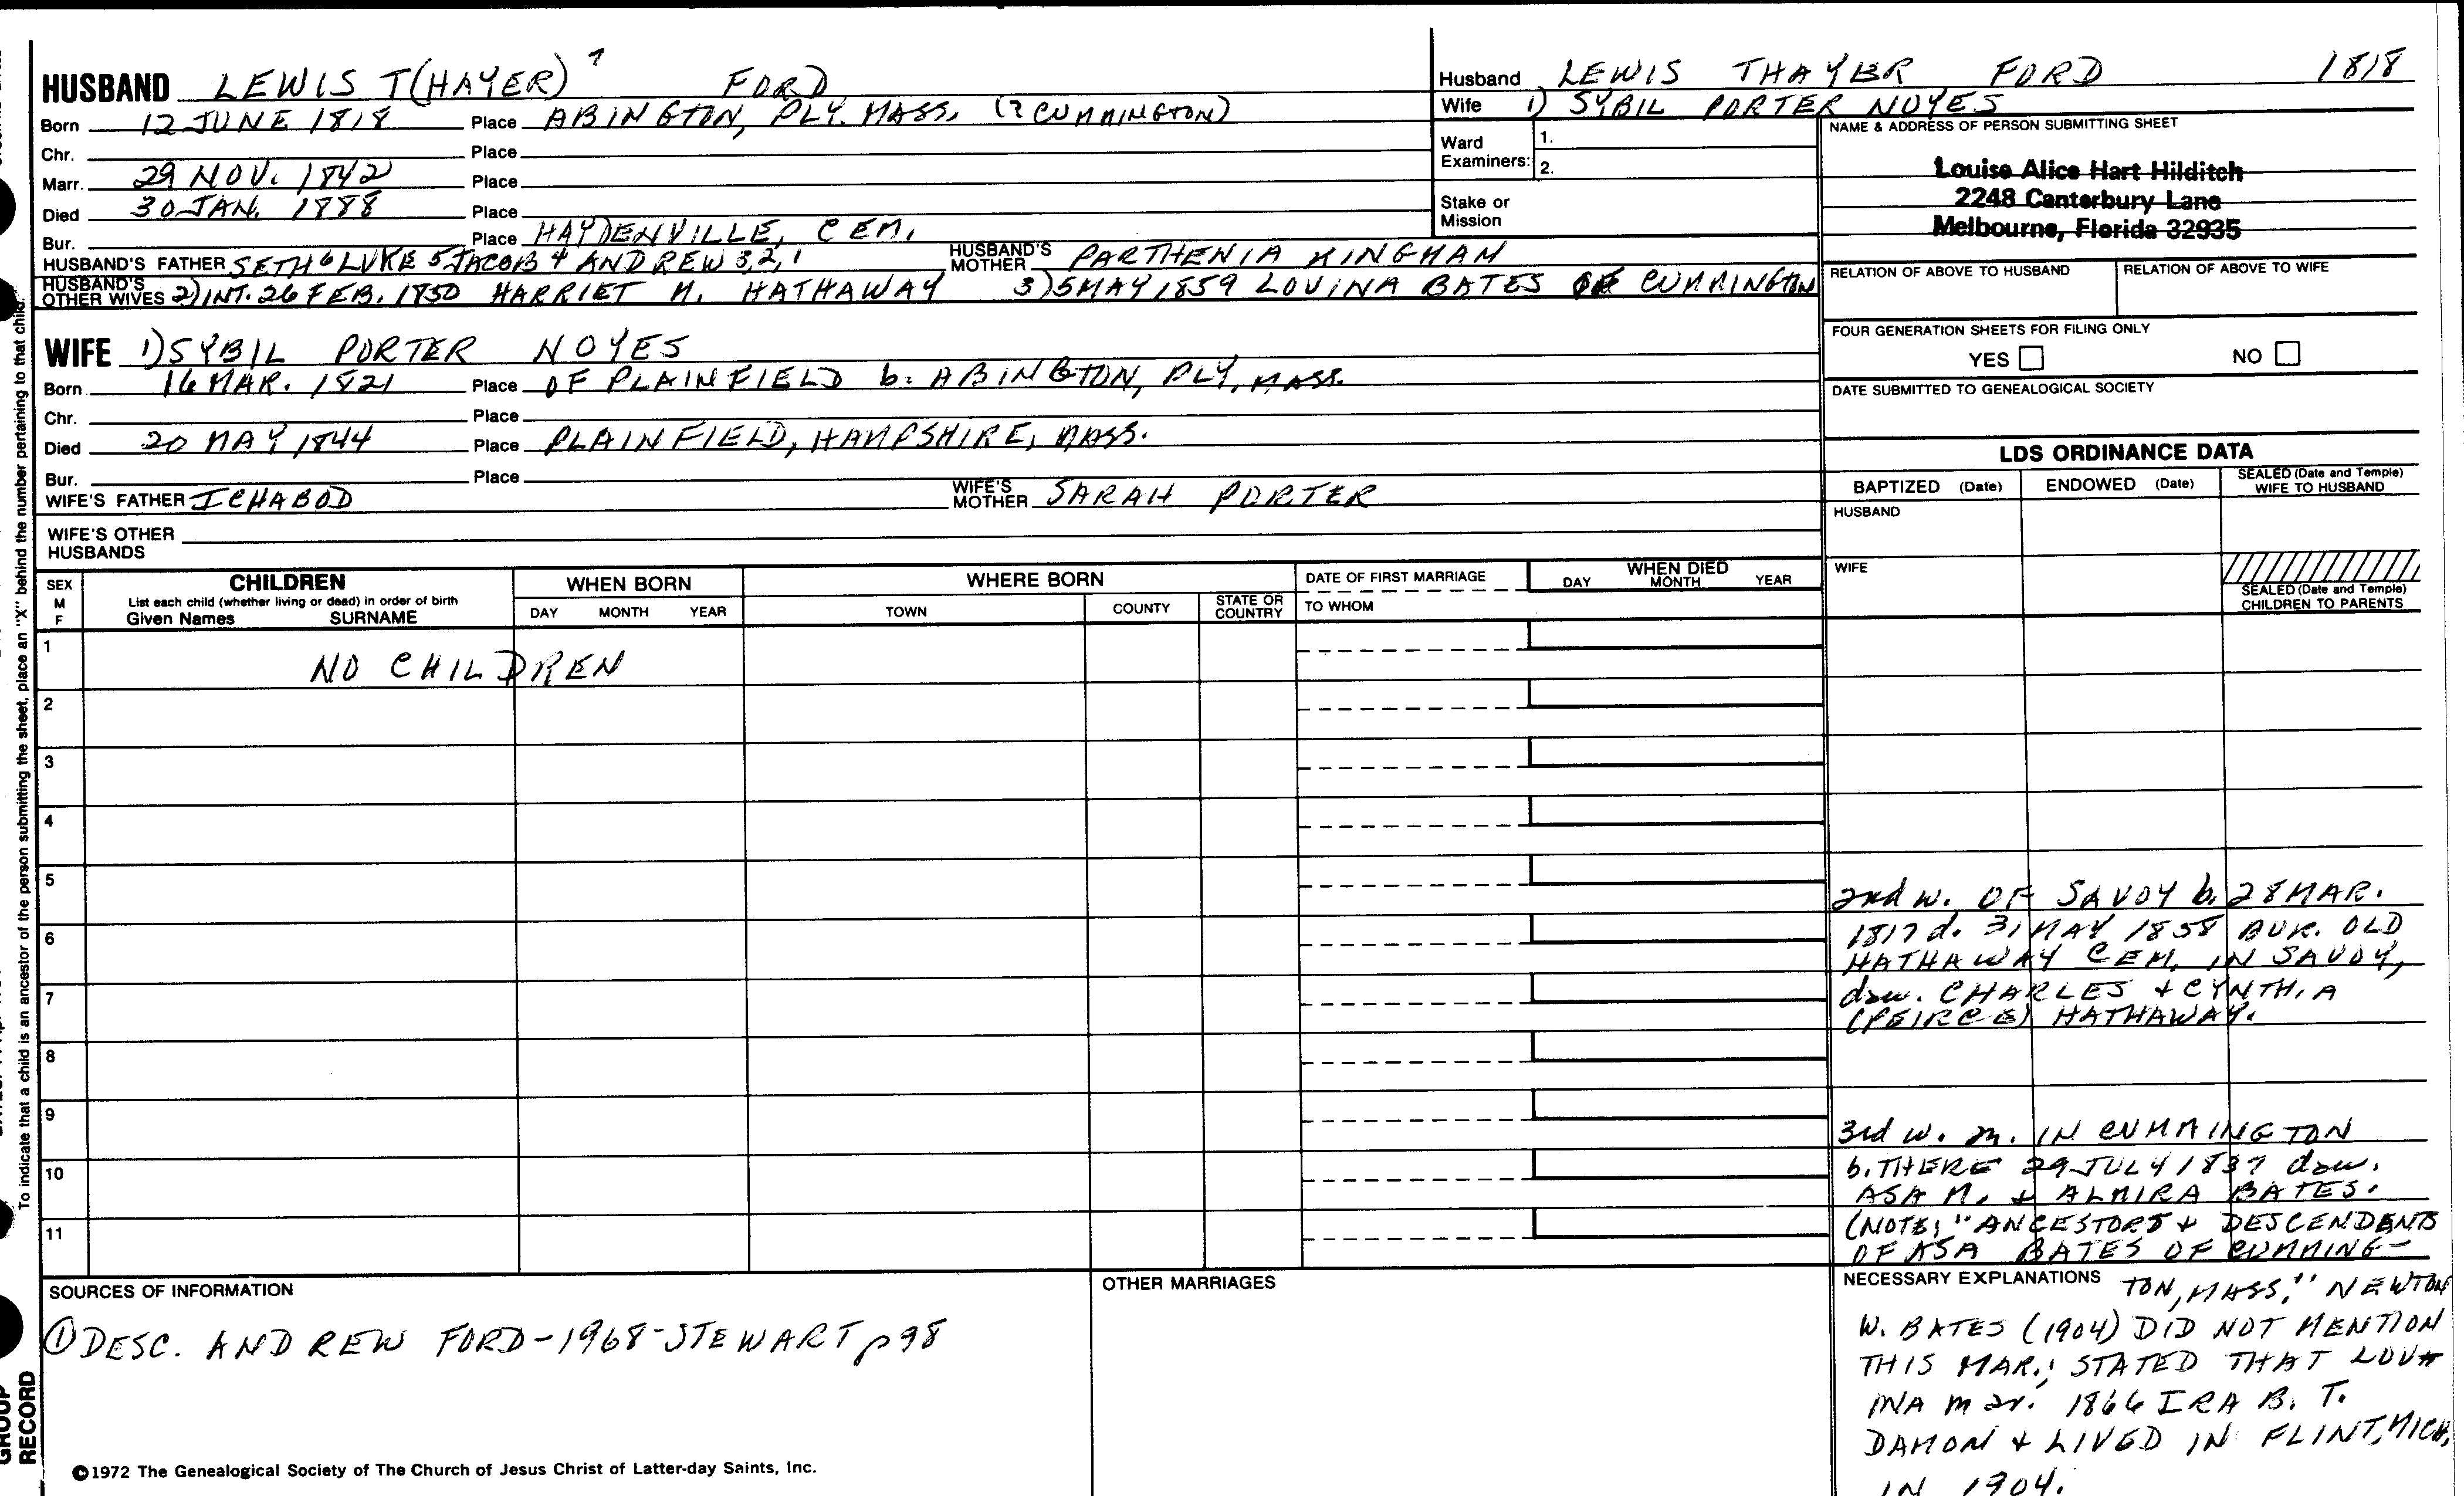 HUSBAND LEWIS T(HAYER) 7 FORD
Born 12 JUNE 1818 Place ABINGTON, PLY. MASS. (? CUMMINGTON)
Chr. Place
Marr. 29 NOV. 1842 Place
Died 30 JAN. 1888 Place
Bur. Place HAYDENVILLE, CEM.
HUSBAND'S FATHER SETH 6 LUKE 5 JACOB 4 ANDREW 3,2,1 HUSBAND'S MOTHER PARTHENIA KINGMAN
HUSBAND'S OTHER WIVES 2) INT. 26 FEB. 1850 HARRIET M. HATHAWAY 3) 5 MAY 1859 LOVINA BATES OF CUMMINGTON
Husband LEWIS THAYER FORD 1818
Wife 1) SYBIL PORTER NOYES
Ward Examiners: 1.
2.
Stake or Mission
NAME & ADDRESS OF PERSON SUBMITTING SHEET
Louise Alice Hart Hilditch
2248 Canterbury Lane
Melbourne, Florida 32935
RELATION OF ABOVE TO HUSBAND RELATION OF ABOVE TO WIFE
FOUR GENERATION SHEETS FOR FILING ONLY
YES NO
DATE SUBMITTED TO GENEALOGICAL SOCIETY
WIFE 1) SYBIL PORTER NOYES
Born 16 MAR. 1821 Place OF PLAINFIELD b. ABINGTON, PLY, MASS.
Chr. Place
Died 20 MAY 1844 Place PLAINFIELD, HAMPSHIRE, MASS.
Bur. Place
WIFE'S FATHER ICHABOD WIFE'S MOTHER SARAH PORTER
WIFE'S OTHER HUSBANDS
LDS ORDINANCE DATA
BAPTIZED (Date) ENDOWED (Date) SEALED (Date and Temple) WIFE TO HUSBAND
HUSBAND
WIFE
SEALED (Date and Temple) CHILDREN TO PARENTS
SEX M F
CHILDREN
List each child (whether living or dead) in order of birth
Given Names SURNAME
WHEN BORN
DAY MONTH YEAR
WHERE BORN
TOWN COUNTY STATE OR COUNTRY
DATE OF FIRST MARRIAGE
TO WHOM
WHEN DIED
DAY MONTH YEAR
1 NO CHILDREN
2
3
4
5
6
7
8
9
10
11
2nd w. OF SAVOY b. 28 MAR.
1817 d. 31 MAY 1858 BUR. OLD
HATHAWAY CEM. IN SAVOY,
dau. CHARLES + CYNTHIA
(PEIRCE) HATHAWAY.
3rd w. m. IN CUMMINGTON
b. THERE 29 JULY 1837 dau.
ASA M. + ALMIRA BATES.
(NOTE, "ANCESTORS + DESCENDENTS
OF ASA BATES OF CUMMING-
NECESSARY EXPLANATIONS TON, MASS," NEWTON
W. BATES (1904) DID NOT MENTION
THIS MAR.; STATED THAT LOV
INA mar. 1866 IRA B. T.
DAMON + LIVED IN FLINT, MICH,
IN 1904.
SOURCES OF INFORMATION
① DESC. ANDREW FORD-1968-STEWART p 98
OTHER MARRIAGES
©1972 The Genealogical Society of The Church of Jesus Christ of Latter-day Saints, Inc.
To indicate that a child is an ancestor of the person submitting the sheet, place an "X" behind the number pertaining to that child.
GROUP
RECORD